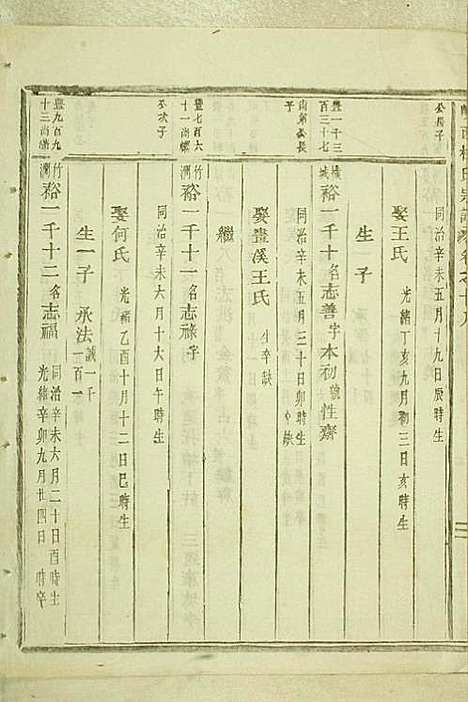 公長子
同治辛未五月十九日辰時生
娶王氏
光緒丁亥九月初三日亥時生
生一子
豐一千三
百三十七
公長
子
裕一千十名志善字木初號性齋
同治辛未五月三十日卯時生
娶畫溪王氏
生卒缺
繼
豐七百六
十一尚
公次子
竹
澗
裕一千十一名志祿字
同治辛未六月十六日午時生
娶何氏
光緒乙酉十月十二日巳時生
生一子
永法
誠一千
一百一
豐九百九
十三尚
竹
澗
裕一千十二名志福
同治辛未六月二十日酉時生
光緒辛卯九月廿四日時卒